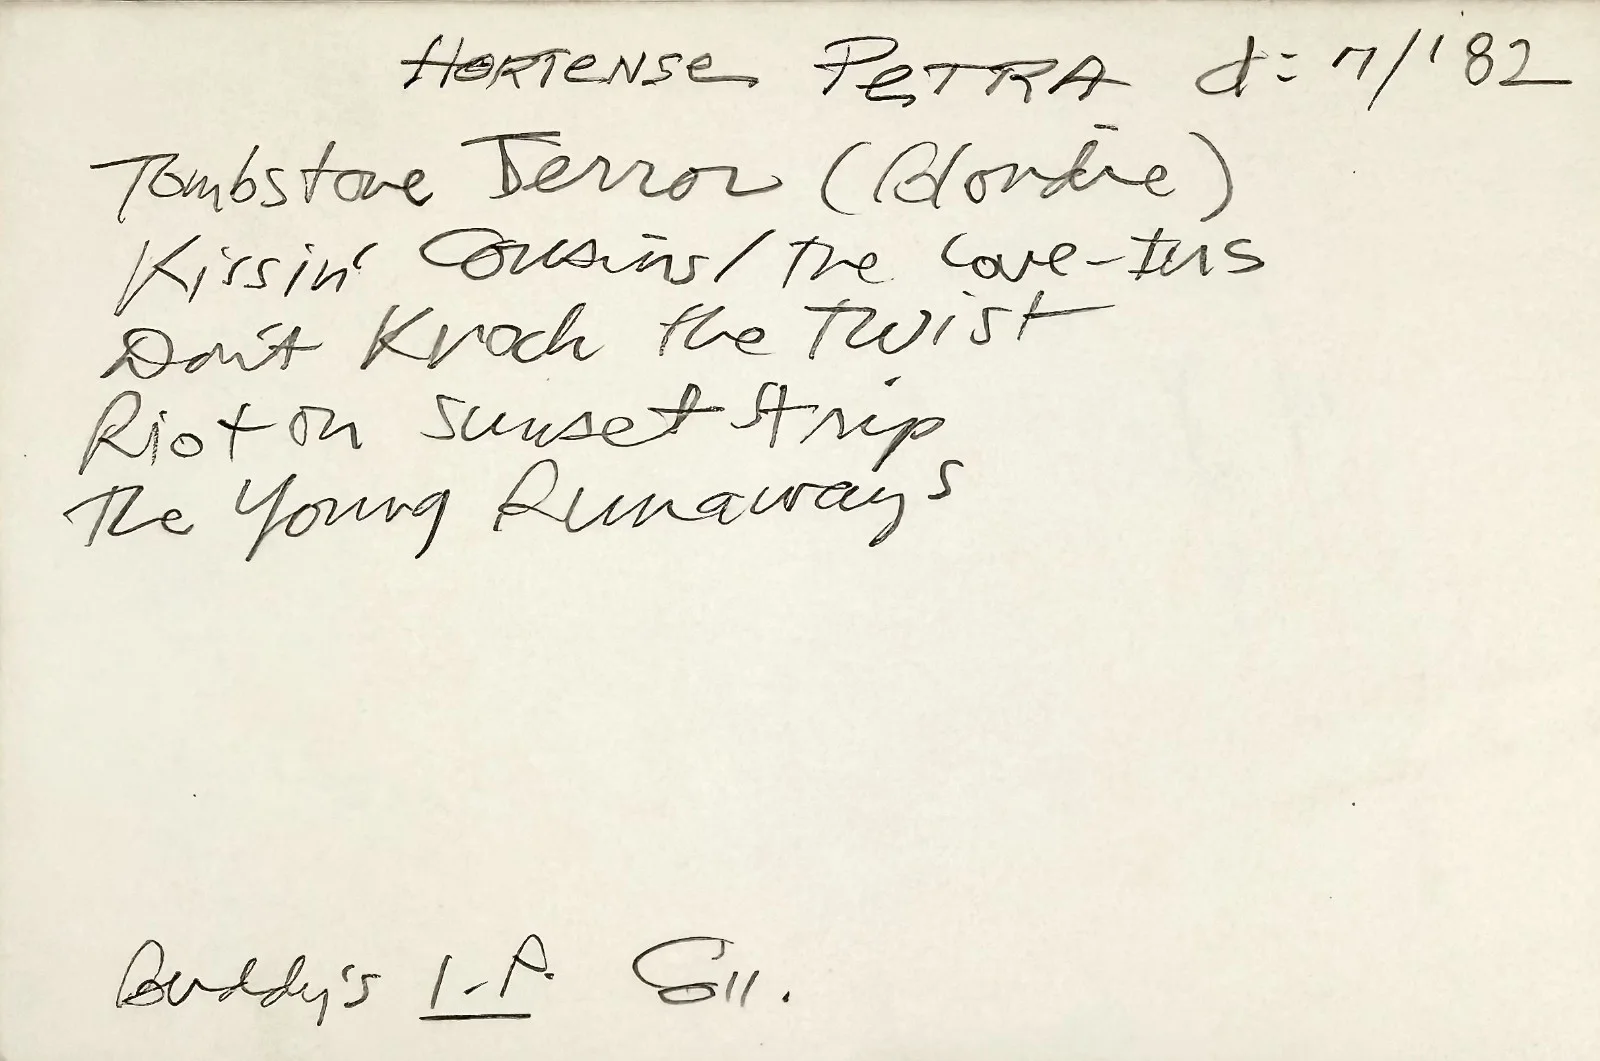 HORTENSE PETRA d: 7/'82
Tombstone Terror (Blondie)
Kissin' Cousins/The Love-Ins
Don't Knock the Twist
Riot on Sunset Strip
The Young Runaways
Buddy's I.P. Coll.